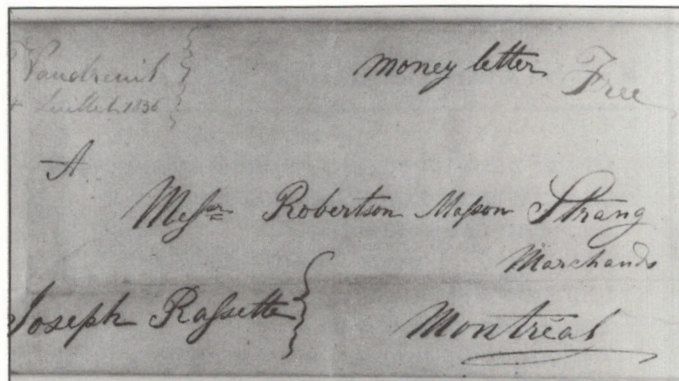 Vaudreuil
Juillet 1836
money letter Free
A
Messrs Robertson Masson Strang
Marchands
Joseph Rassette
Montréal